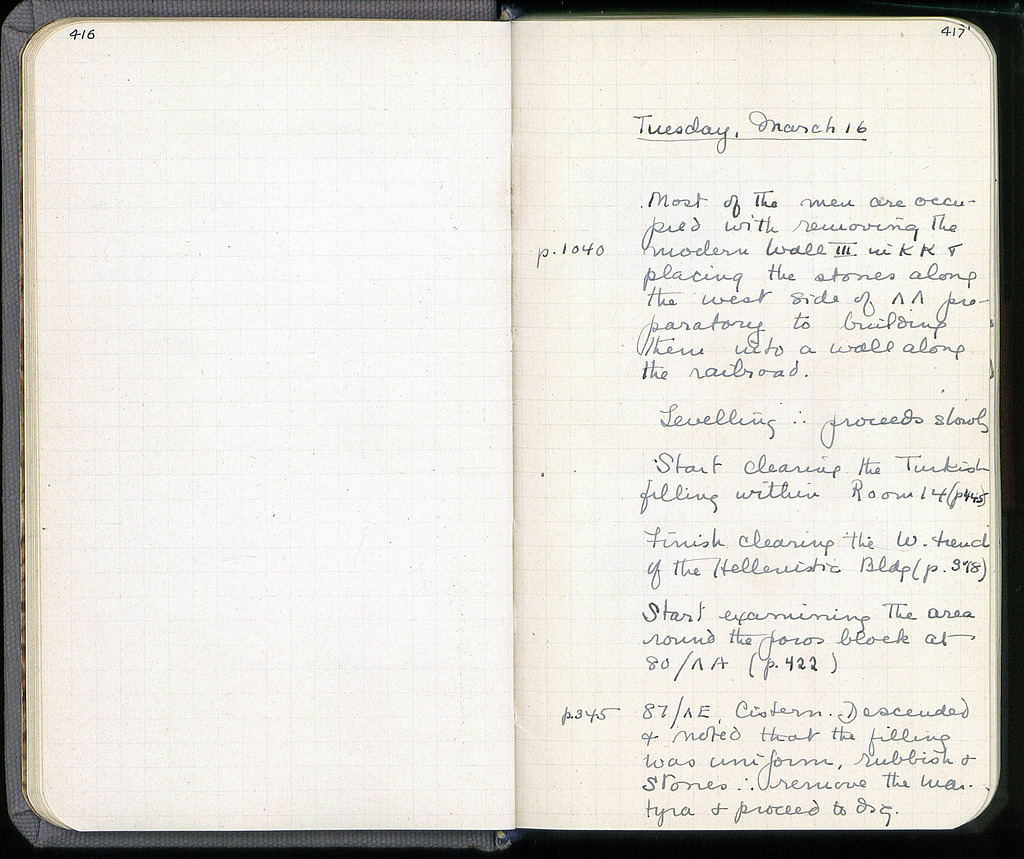 416
417
Tuesday, March 16
Most of the men are occu-
pied with removing the
p. 1040 modern wall III in KK &
placing the stones along
the west side of ΛΛ pre-
paratory to building
them into a wall along
the railroad.
Levelling ∴ proceeds slowly
Start clearing the Turkish
filling within Room 14 (p. 445)
Finish clearing the W. end
of the Hellenistic Bldg (p. 378)
Start examining the area
round the poros block at
80/ΛΑ (p. 422)
p. 345 87/ΛΕ, Cistern. Descended
& noted that the filling
was uniform, rubbish &
stones ∴ remove the mar-
tyra & proceed to dig.